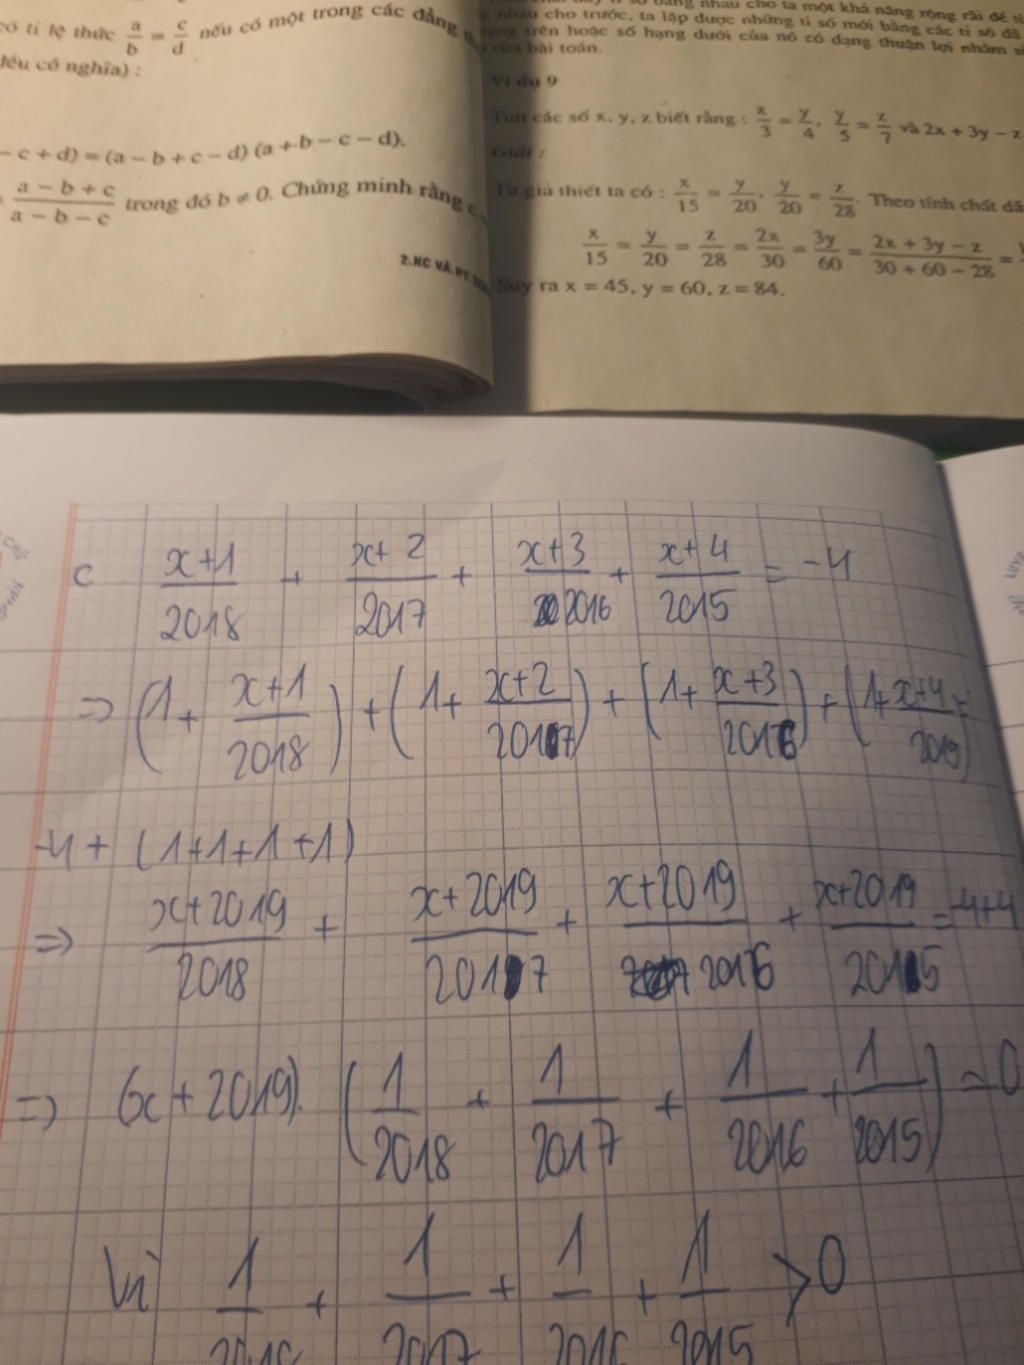 có tỉ lệ thức a/b = c/d nếu có một trong các đẳng
đều có nghĩa) :
- c + d) = (a - b + c - d) (a + b - c - d).
a - b + c / a - b - c trong đó b ≠ 0. Chứng minh rằng c
2.NC VÀ PT
nhau cho ta một khả năng rộng rãi để
nhau cho trước, ta lập được những tỉ số mới bằng các tỉ số đã
trên hoặc số hạng dưới của nó có dạng thuận lợi nhằm
của bài toán.
Ví dụ 9
Tìm các số x, y, z biết rằng : x/3 = y/4, y/5 = z/7 và 2x + 3y - z
Giải :
Từ giả thiết ta có : x/15 = y/20, y/20 = z/28. Theo tính chất
x/15 = y/20 = z/28 = 2x/30 = 3y/60 = 2x + 3y - z / 30 + 60 - 28 =
Suy ra x = 45, y = 60, z = 84.
c x+1/2018 + x+2/2017 + x+3/2016 + x+4/2015 = -4
=> (1 + x+1/2018) + (1 + x+2/2017) + (1 + x+3/2016) + (1 + x+4/2015) =
-4 + (1+1+1+1)
=> x+2019/2018 + x+2019/2017 + x+2019/2016 + x+2019/2015 = -4+4
=> (x+2019). (1/2018 + 1/2017 + 1/2016 + 1/2015) = 0
Vì 1/2018 + 1/2017 + 1/2016 + 1/2015 > 0